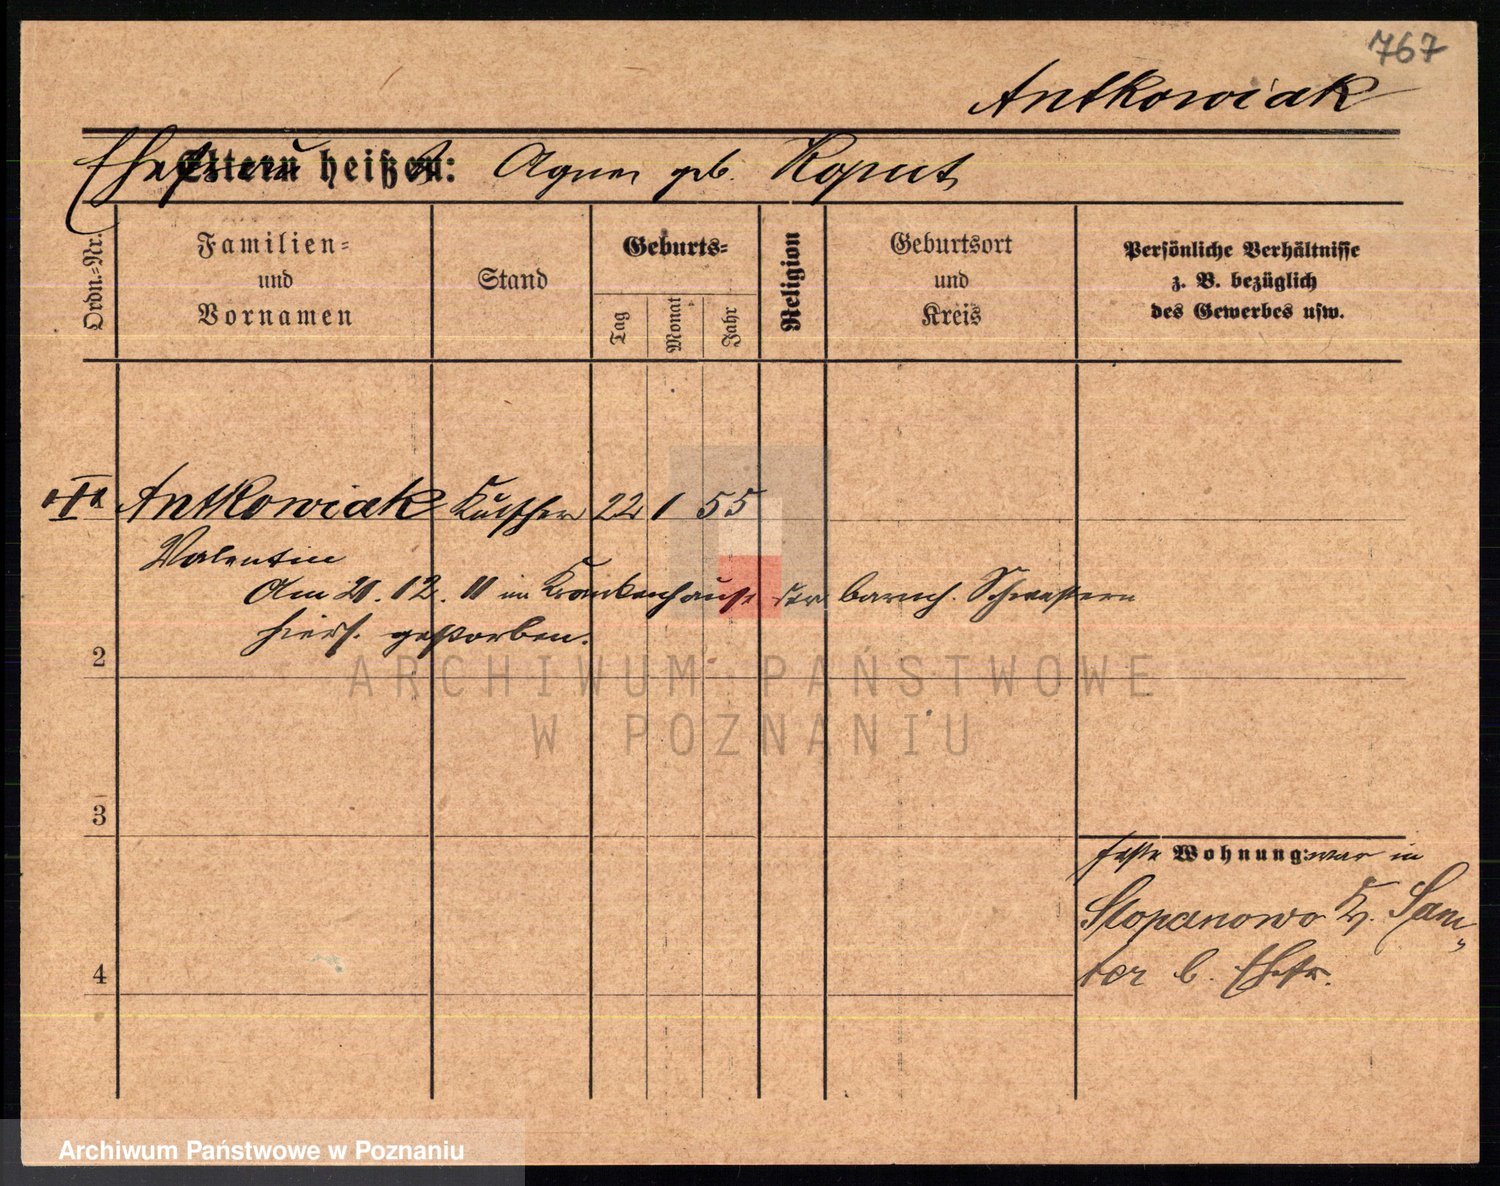 767
Antkowiak
Ehefrau Eltern heißen: Agnes geb. Koput
Ordn.-Nr.
Familien-
und
Vornamen
Stand
Geburts-
Tag
Monat
Jahr
Religion
Geburtsort
und
Kreis
Persönliche Verhältnisse
z. B. bezüglich
des Gewerbes usw.
Antkowiak Kutscher 22 1 55
Valentin
Am 21. 12. 11 im Krankenhause der barmh. Schwestern
hiers. gestorben.
2
3
4
feste Wohnung: war in
Slopanowo Kr. Sam-
ter b. Ehefr.
ARCHIWUM PAŃSTWOWE
W POZNANIU
Archiwum Państwowe w Poznaniu